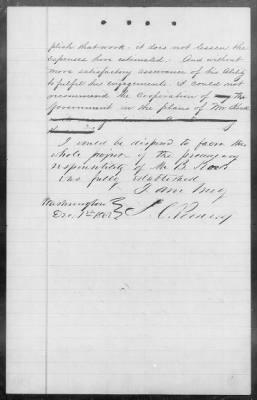 plish that work: it does not lessen the
expenses here estimated. And without
more satisfactory assurance of his ability
to fulfil his engagements. I could not
recommend the Cooperation of the
Government in the plans of Mr. Kock
I would be disposed to favor this
whole project if the pecuniary
responsibility of Mr. B. Kock
was fully established
I am truly
Washington
Dec. 1st 1862
S. C. Pomeroy